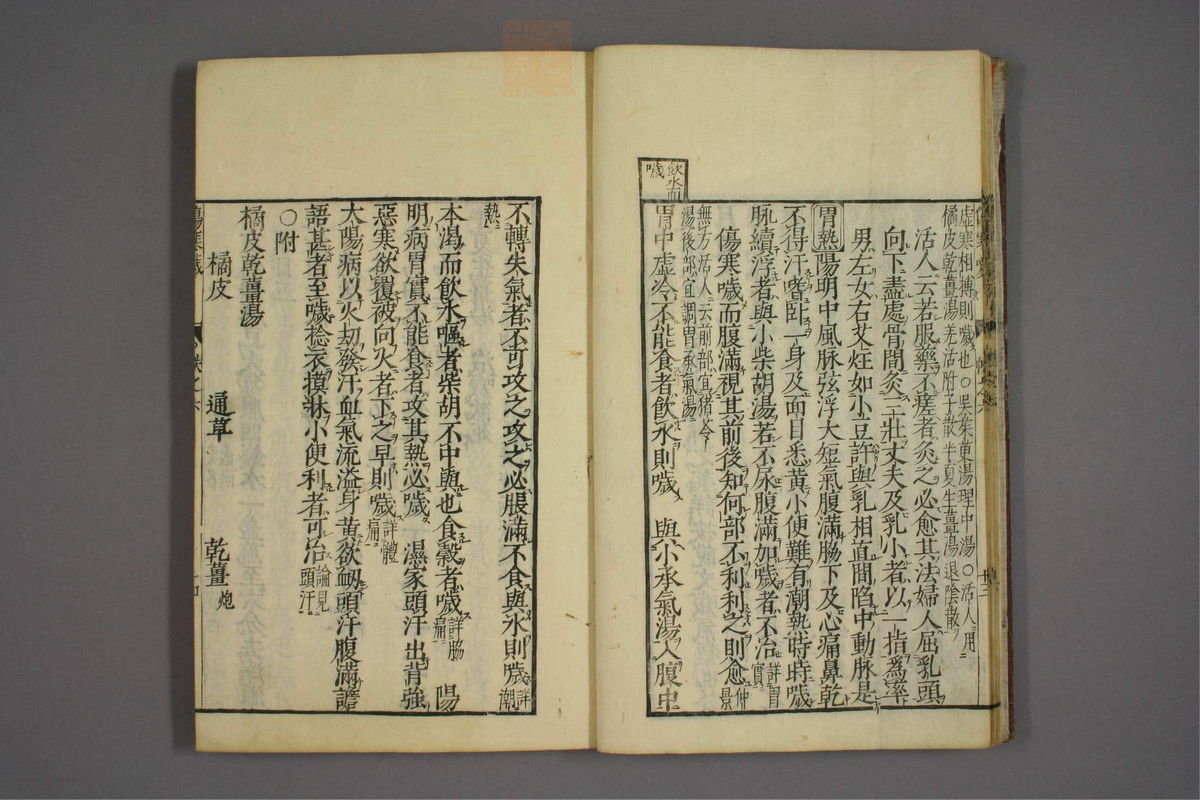 虛寒相摶則噦也○吳茱萸湯理中湯○活人用
橘皮乾薑湯羌活附子散半夏生薑湯退陰散
活人云若服藥不瘥者灸之必愈其法婦人屈乳頭
向下盡處骨間灸三壯丈夫及乳小者以一指爲率
男左女右艾炷如小豆許與乳相直間陷中動脉是
胃熱陽明中風脉弦浮大短氣腹滿脇下及心痛鼻乾
不得汗嗜卧一身及面目悉黃小便難有潮熱時時噦
脉續浮者與小柴胡湯若不尿腹滿加噦者不治詳胃實
傷寒噦而腹滿視其前後知何部不利利之則愈仲景
無方活人云前部宜猪苓
湯後部宜調胃承氣湯
飲水而噦
胃中虛冷不能食者飲水則噦 與小承氣湯入腹中
不轉失氣者不可攻之攻之必脹滿不食與水則噦詳潮
熱
本渴而飲水嘔者柴胡不中與也食穀者噦詳脇痛 陽
明病胃實不能食者攻其熱必噦 濕家頭汗出背強
惡寒欲覆被向火者下之早則噦詳體痛
大陽病以火劫發汗血氣流溢身黃欲衂頭汗腹滿譫
語甚者至噦捻衣摸牀小便利者可治論見頭汗
○附
橘皮乾薑湯
橘皮 通草 乾薑炮